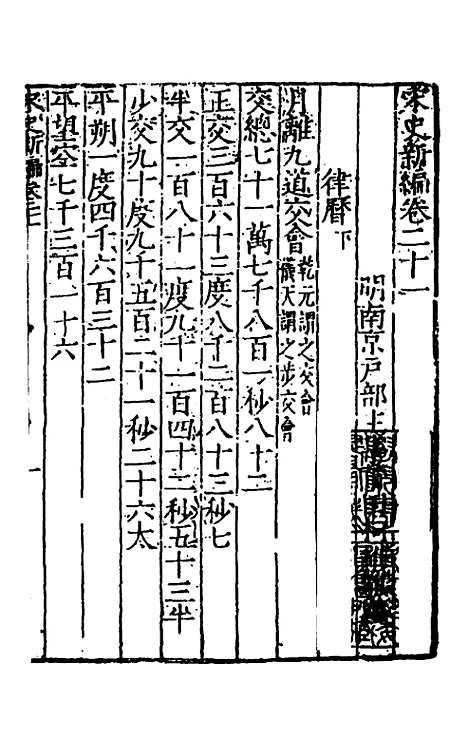 宋史新編卷二十一
明南京戶部主
律曆下
月離九道交會乾元謂之交會儀天謂之步交會
交總七十一萬七千八百一秒八十二
正交三百六十三度八千二百八十三秒七
半交一百八十一度九千一百四十二秒五十三半
少交九十度九千五百二十一秒二十六太
平朔一度四千六百三十二
平望空七千三百一十六
宋史新編卷二十一
一